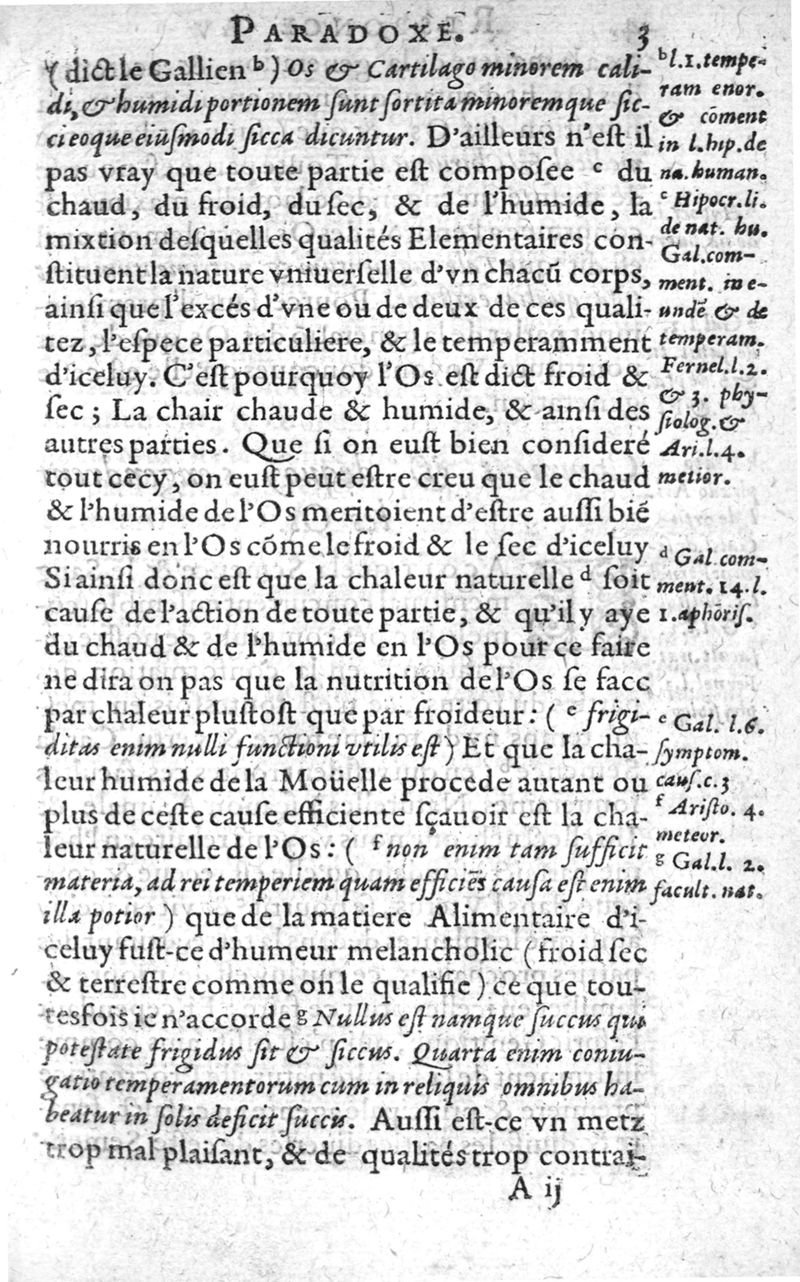 PARADOXE. 3
(dict le Gallien ᵇ) Os & Cartilago minorem cali-
di, & humidi portionem ſunt ſortita minoremque ſic-
ci eoque eiuſmodi ſicca dicuntur. D'ailleurs n'eſt il
pas vray que toute partie eſt compoſee ᶜ du
chaud, du froid, du ſec, & de l'humide, la
mixtion deſquelles qualités Elementaires con-
ſtituent la nature vniuerſelle d'vn chacũ corps,
ainſi que l'excés d'vne ou de deux de ces quali-
tez, l'eſpece particuliere, & le temperamment
d'iceluy. C'eſt pourquoy l'Os eſt dict froid &
ſec ; La chair chaude & humide, & ainſi des
autres parties. Que ſi on euſt bien conſideré
tout cecy, on euſt peut eſtre creu que le chaud
& l'humide de l'Os meritoient d'eſtre auſſi biẽ
nourris en l'Os cõme le froid & le ſec d'iceluy
Si ainſi donc eſt que la chaleur naturelle ᵈ ſoit
cauſe de l'action de toute partie, & qu'il y aye
du chaud & de l'humide en l'Os pour ce faire
ne dira on pas que la nutrition de l'Os ſe face
par chaleur pluſtoſt que par froideur : ( ᵉ frigi-
ditas enim nulli functioni vtilis eſt ) Et que la cha-
leur humide de la Moüelle procede autant ou
plus de ceſte cauſe efficiente sçauoir eſt la cha-
leur naturelle de l'Os : ( ᶠ non enim tam ſufficit
materia, ad rei temperiem quam efficiẽs cauſa eſt enim
illa potior ) que de la matiere Alimentaire d'i-
celuy fuſt-ce d'humeur melancholic (froid ſec
& terreſtre comme on le qualifie ) ce que tou-
tesfois ie n'accorde ᵍ Nullus eſt namque ſuccus qui
poteſtate frigidus ſit & ſiccus. Quarta enim coniu-
gatio temperamentorum cum in reliquis omnibus ha-
beatur in ſolis deficit ſuccis. Auſſi eſt-ce vn metz
trop mal plaiſant, & de qualités trop contrai-
A ij
ᵇ l.1.tempe-
ram enor.
& cõment
in l.hip.de
na.human.
ᶜ Hipocr.li.
de nat. hu.
Gal.com-
ment. in e-
undẽ & de
temperam.
Fernel.l.2.
& 3. phy-
ſiolog. &
Ari.l.4.
metior.
ᵈ Gal com-
ment. 14.l.
1.aphoriſ.
ᵉ Gal. l.6.
ſymptom.
cauſ.c.3
ᶠ Ariſto. 4.
meteor.
ᵍ Gal.l. 2.
facult. nat.